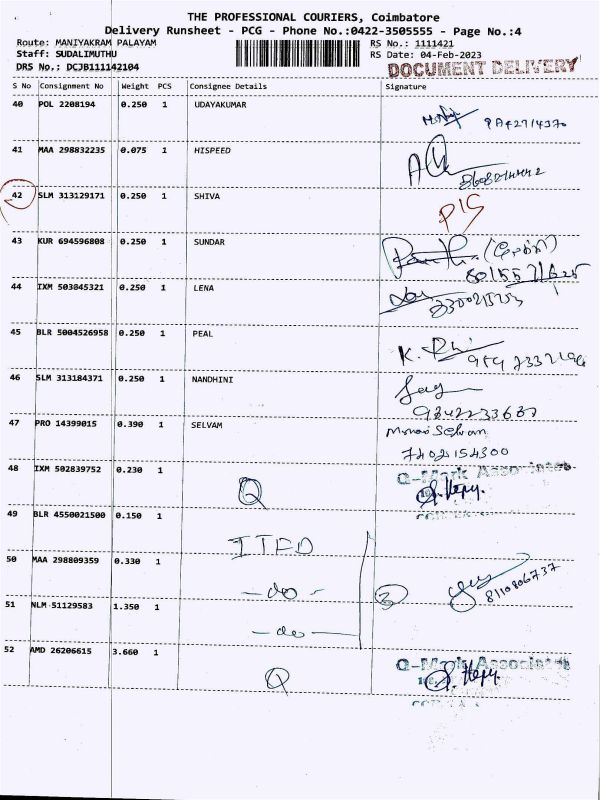 THE PROFESSIONAL COURIERS, Coimbatore
Delivery Runsheet - PCG - Phone No.:0422-3505555 - Page No.:4
Route: MANIYAKRAM PALAYAM RS No.: 1111421
Staff: SUDALIMUTHU RS Date: 04-Feb-2023
DRS No.: DCJB111142104 DOCUMENT DELIVERY
S No Consignment No Weight PCS Consignee Details Signature
40 POL 2208194 0.250 1 UDAYAKUMAR
41 MAA 298832235 0.075 1 HISPEED
42 SLM 313129171 0.250 1 SHIVA
43 KUR 694596808 0.250 1 SUNDAR
44 IXM 503045321 0.250 1 LENA
45 BLR 5004526958 0.250 1 PEAL
46 SLM 313184371 0.250 1 NANDHINI
9842233637
47 PRO 14399015 0.390 1 SELVAM Selvam
7402154300
48 IXM 502839752 0.230 1 Q Q-Mark Associates
49 BLR 4550021500 0.150 1 ITFD
50 MAA 298809359 0.330 1 - do - 3 8110806737
51 NLM 51129583 1.350 1 - do -
52 AMD 26206615 3.660 1 Q Q-Mark Associates